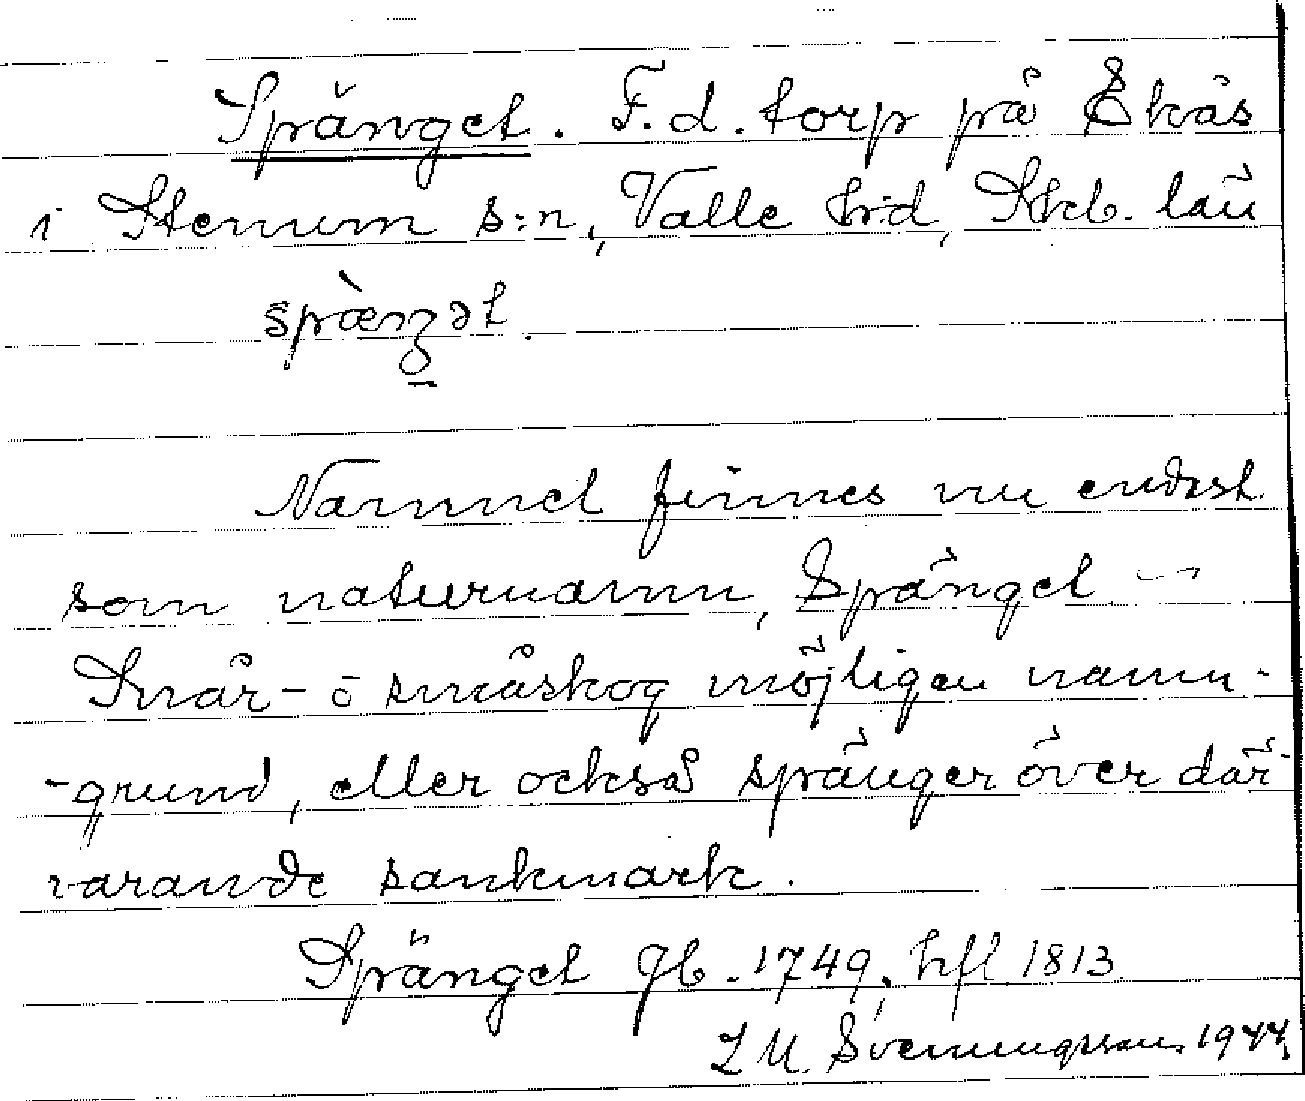 Spänget. F.d. torp på Ekås
i Stenum s:n, Valle hd, Skb. län
spæ̀ŋət.
Namnet finnes nu endast
som naturnamn, Spänget
Snår- o småskog möjligen namn-
-grund, eller också spänger över där-
varande sankmark.
Spänget Jb. 1749, hfl 1813
L M. Svenungsson 1944